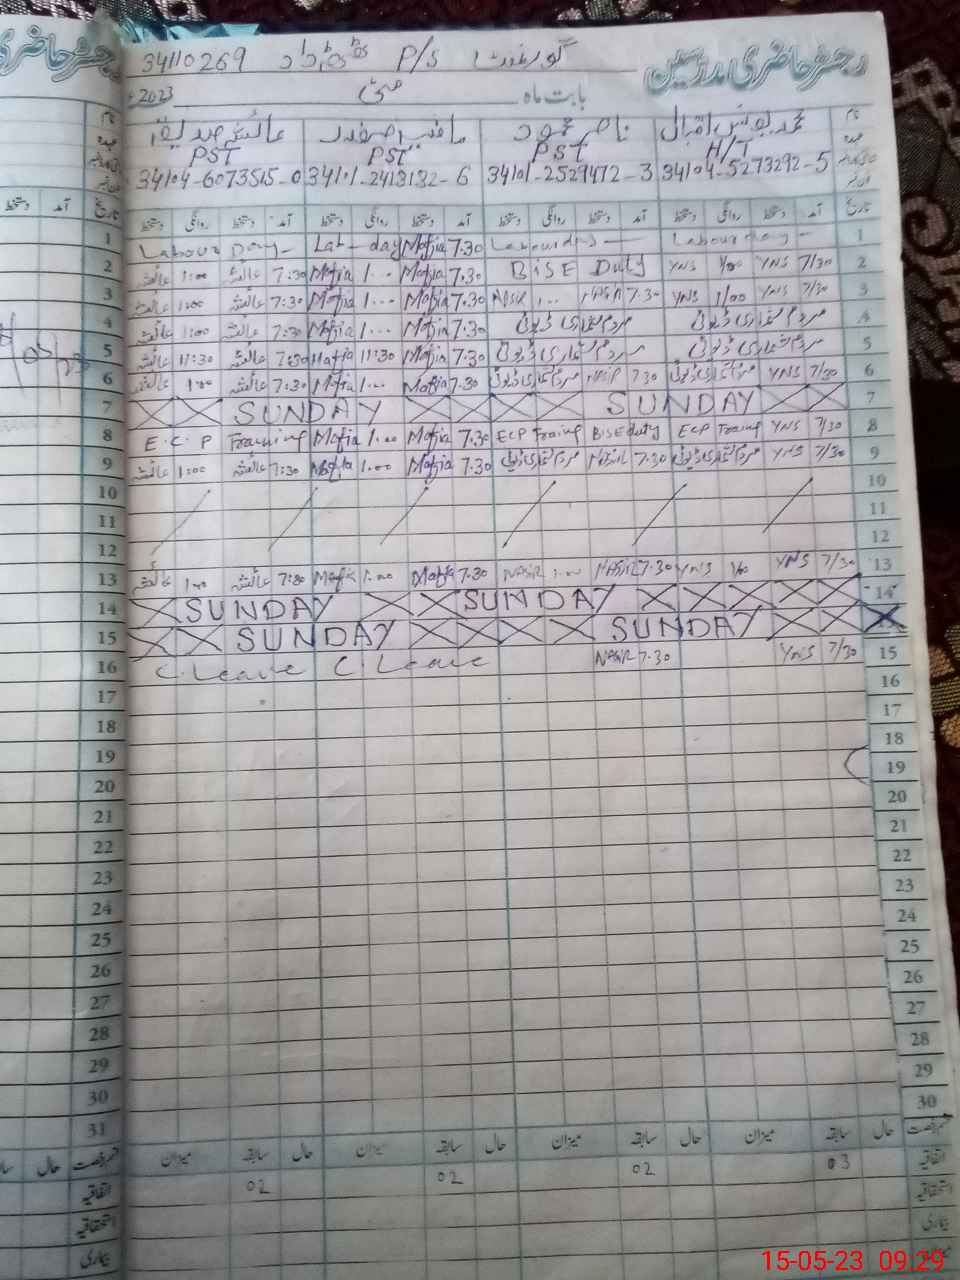 رجسٹر حاضری مدرسین گورنمنٹ P/S 34110269
بابت ماہ مئی 2023
نام محمد یونس اقبال ناصر محمود مافیہ صفدر عائشہ صدیقہ
عہدہ H/T PST PST PST
34104-5273292-5 34101-2529472-3 34101-2413132-6 34104-6073515-0
تاریخ آمد دستخط روانگی دستخط آمد دستخط روانگی دستخط آمد دستخط روانگی دستخط آمد دستخط روانگی دستخط
1 Labour Day Lab-day Mafia 7.30 Labour day Labour day 1
2 عائشہ 1:00 عائشہ 7:30 Mafia 1.00 Mafia 7.30 BISE Duty YNS 1/00 YNS 7/30 2
3 عائشہ 1:00 عائشہ 7:30 Mafia 1.00 Mafia 7.30 NASIR 1.00 NASIR 7.30 YNS 1/00 YNS 7/30 3
4 عائشہ 1:00 عائشہ 7:30 Mafia 1.00 Mafia 7.30 مردم شماری ڈیوٹی مردم شماری ڈیوٹی 4
5 عائشہ 11:30 عائشہ 7:30 Mafia 11:30 Mafia 7.30 مردم شماری ڈیوٹی مردم شماری ڈیوٹی 5
6 عائشہ 1:00 عائشہ 7:30 Mafia 1.00 Mafia 7.30 مردم شماری ڈیوٹی NASIR 7.30 مردم شماری ڈیوٹی YNS 7/30 6
7 SUNDAY SUNDAY 7
8 E.C.P Training Mafia 1.00 Mafia 7.30 ECP Traing BISE duty ECP Traing YNS 7/30 8
9 عائشہ 1:00 عائشہ 7:30 Mafia 1.00 Mafia 7.30 مردم شماری ڈیوٹی NASIR 7.30 مردم شماری ڈیوٹی YNS 7/30 9
10 10
11 11
12 12
13 عائشہ 1:00 عائشہ 7:30 Mafia 1.00 Mafia 7.30 NASIR 1.00 NASIR 7.30 YNS 1/00 YNS 7/30 13
14 SUNDAY SUNDAY 14
15 SUNDAY SUNDAY
16 C. Leave C Leave NASIR 7.30 YNS 7/30 15
17 16
18 17
19 18
20 19
21 20
22 21
23 22
24 23
25 24
26 25
27 26
28 27
29 28
30 29
31 30
قسم رخصت حال سابقہ میزان حال سابقہ میزان حال سابقہ میزان حال سابقہ میزان
اتفاقیہ 03 02 02 02
استحقاقیہ
بیماری
15-05-23 09:29